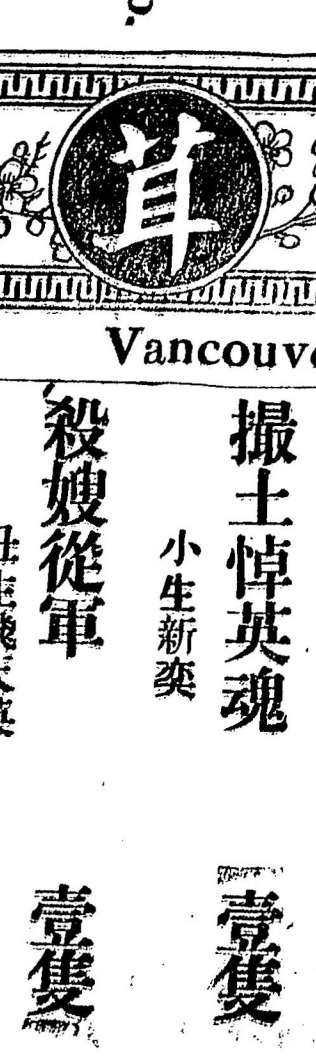 茸
Vancouve
撮土悼英魂
小生新奕
壹隻
殺嫂從軍
壹隻